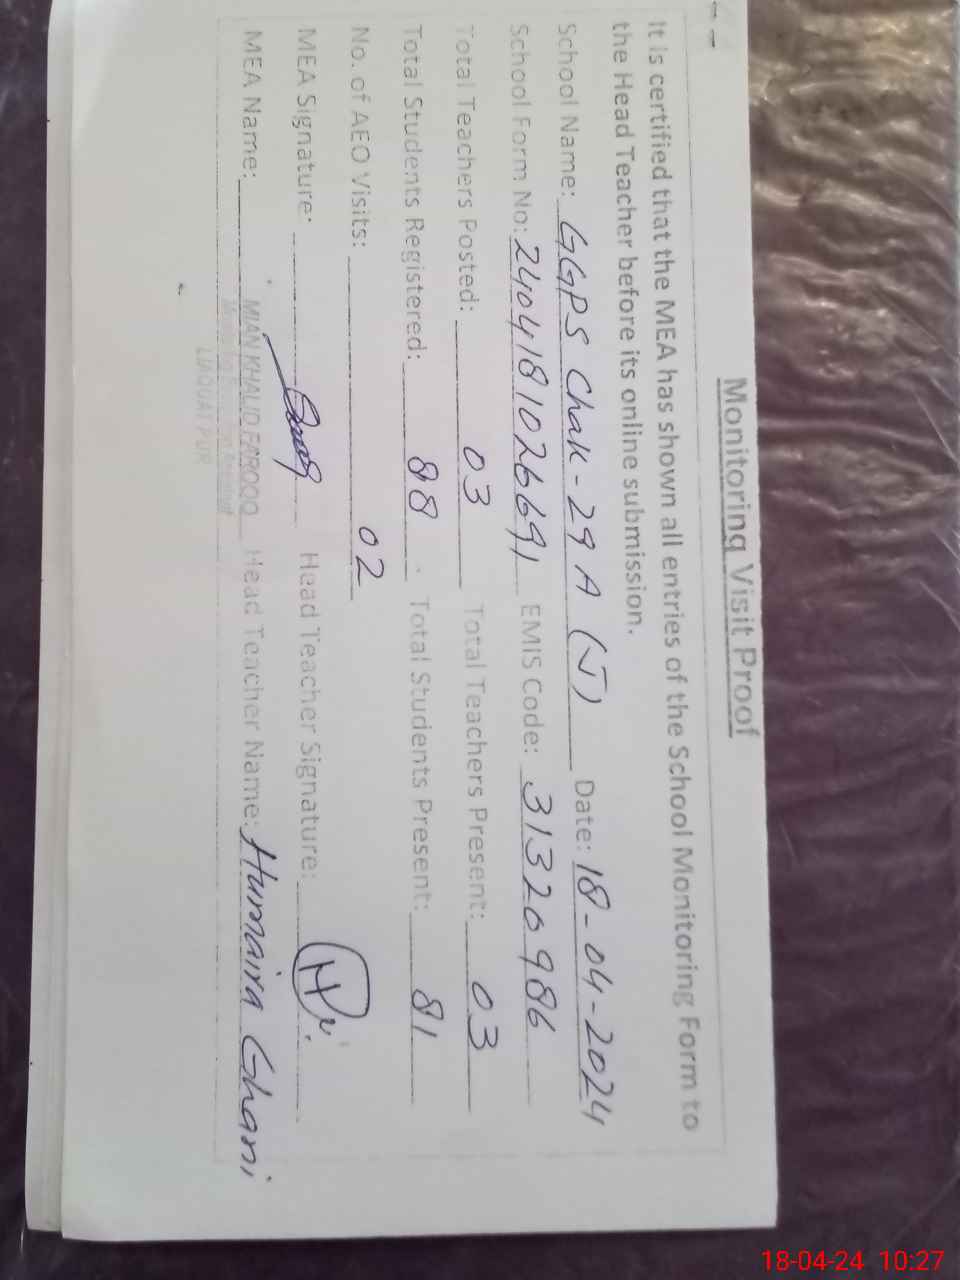 Monitoring Visit Proof
It is certified that the MEA has shown all entries of the School Monitoring Form to
the Head Teacher before its online submission.
School Name: GGPS Chak-29 A (J) Date: 18-04-2024
School Form No: 2404181026691 EMIS Code: 31320986
Total Teachers Posted: 03 Total Teachers Present: 03
Total Students Registered: 88 Total Students Present: 81
No. of AEO Visits: 02
MEA Signature: Head Teacher Signature: H
MEA Name: MIAN KHALID FAROOQ Head Teacher Name: Humaira Ghani
LIAQUAT PUR
18-04-24 10:27